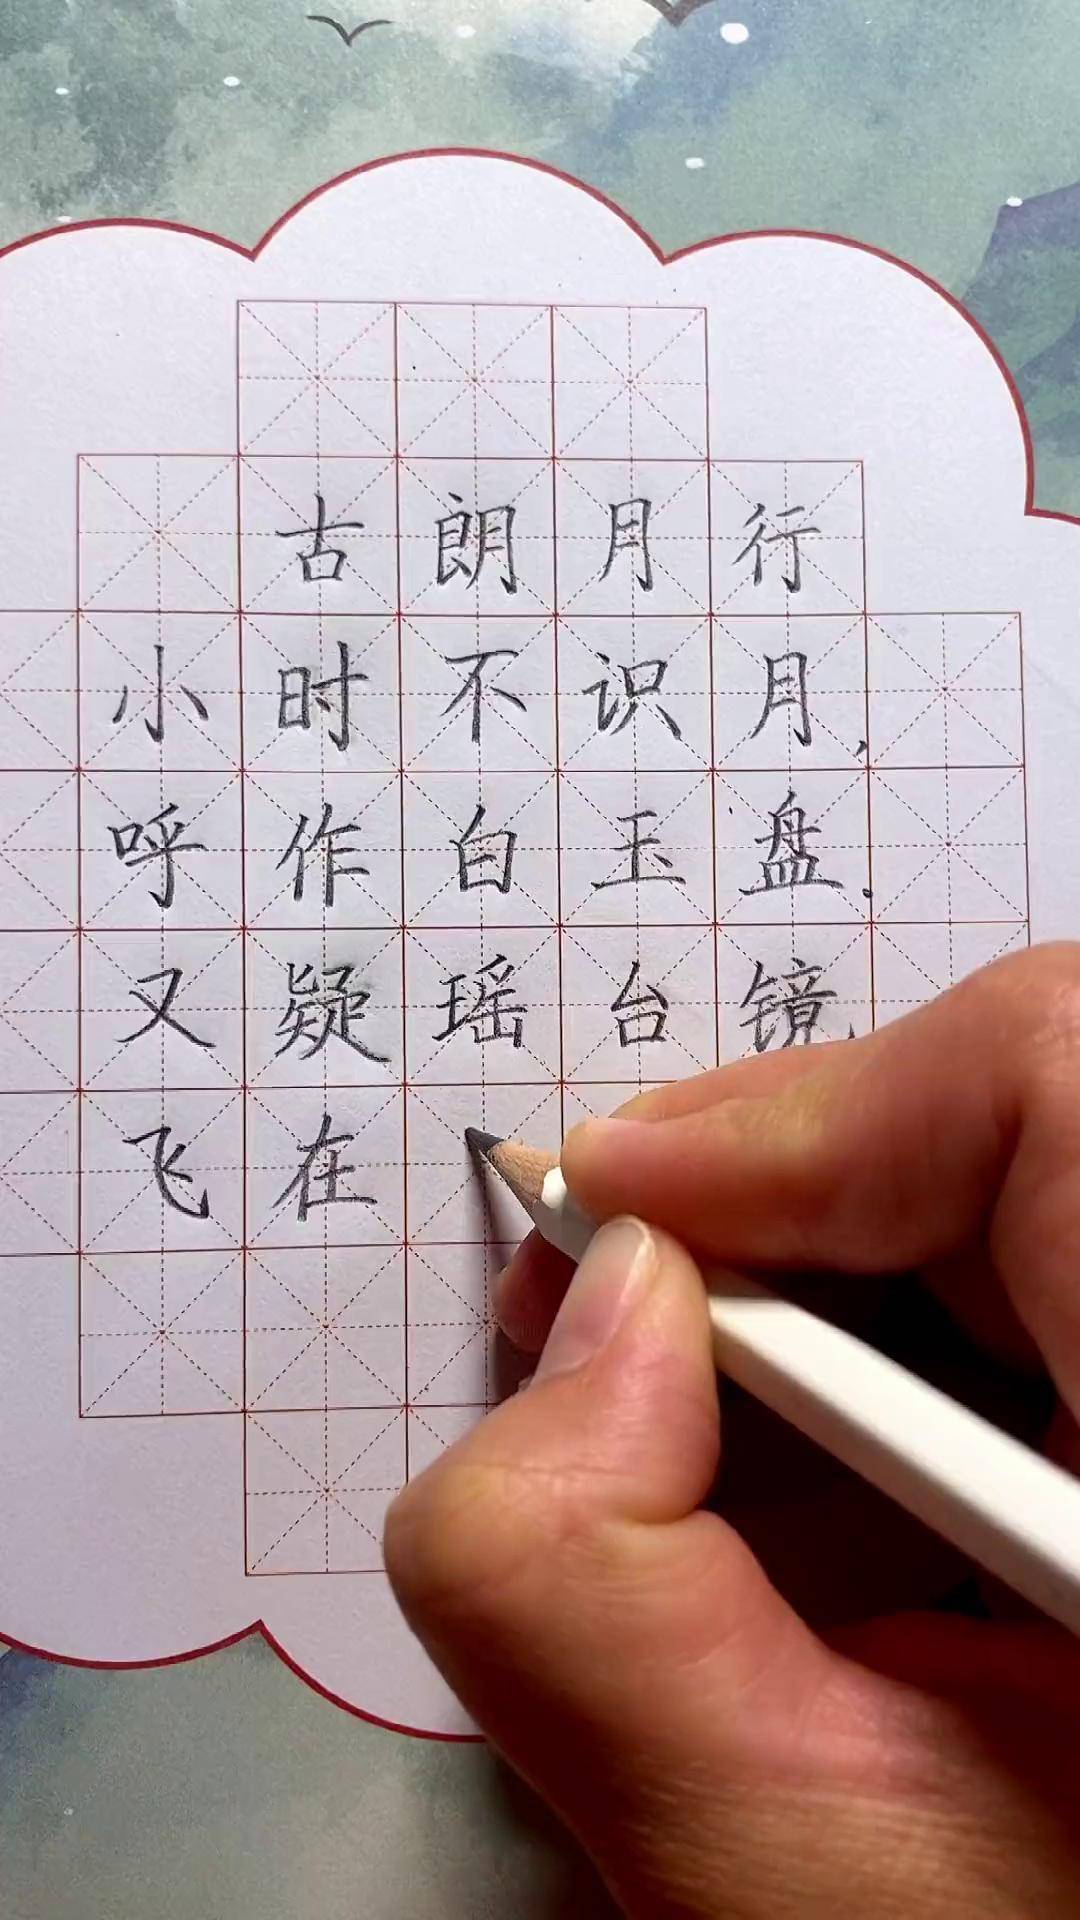 古朗月行
小时不识月,
呼作白玉盘.
又疑瑶台镜,
飞在